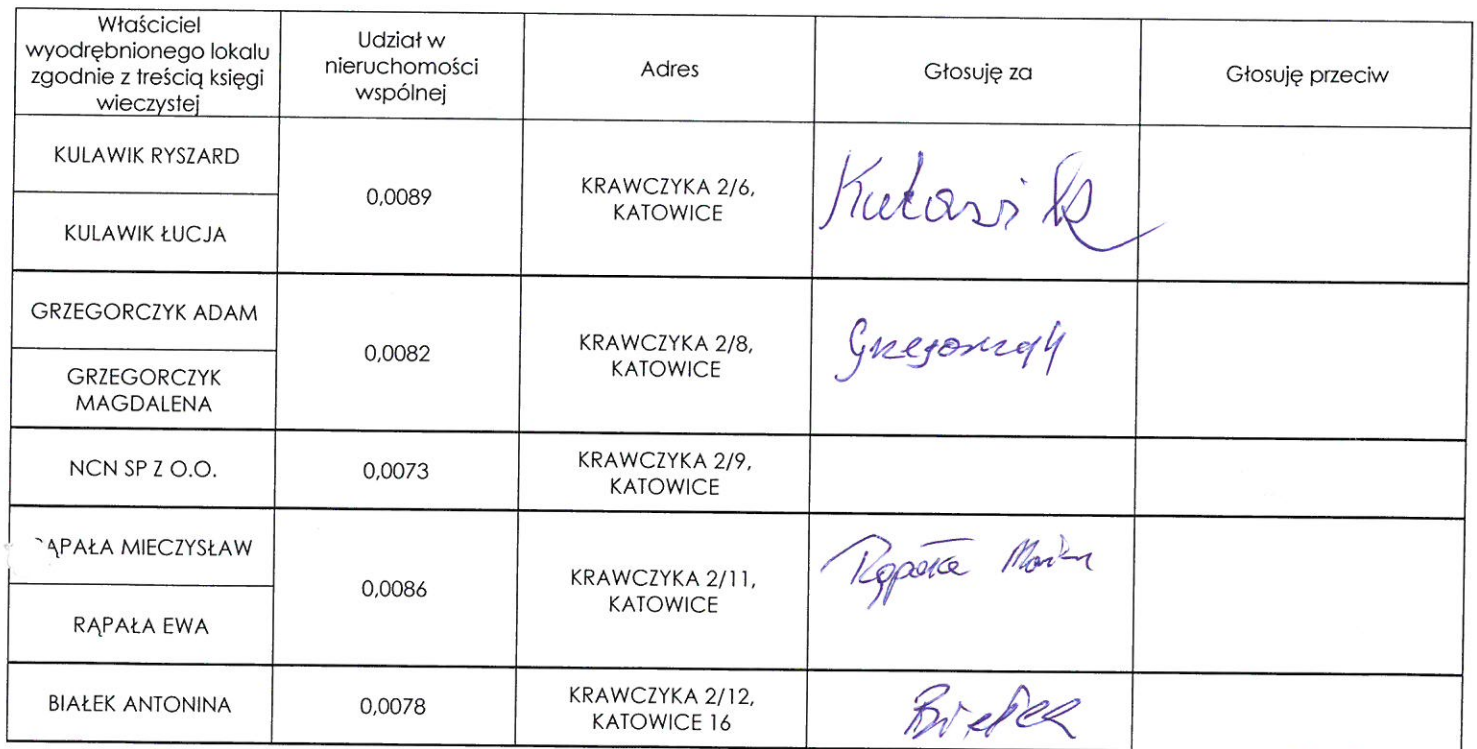 Właściciel
wyodrębnionego lokalu
zgodnie z treścią księgi
wieczystej
Udział w
nieruchomości
wspólnej
Adres
Głosuję za
Głosuję przeciw
KULAWIK RYSZARD
KULAWIK ŁUCJA
0,0089
KRAWCZYKA 2/6,
KATOWICE
Kuławik
GRZEGORCZYK ADAM
GRZEGORCZYK
MAGDALENA
0,0082
KRAWCZYKA 2/8,
KATOWICE
Grzegorczyk
NCN SP Z O.O.
0,0073
KRAWCZYKA 2/9,
KATOWICE
ĄPAŁA MIECZYSŁAW
RĄPAŁA EWA
0,0086
KRAWCZYKA 2/11,
KATOWICE
Rąpała
BIAŁEK ANTONINA
0,0078
KRAWCZYKA 2/12,
KATOWICE 16
Białek